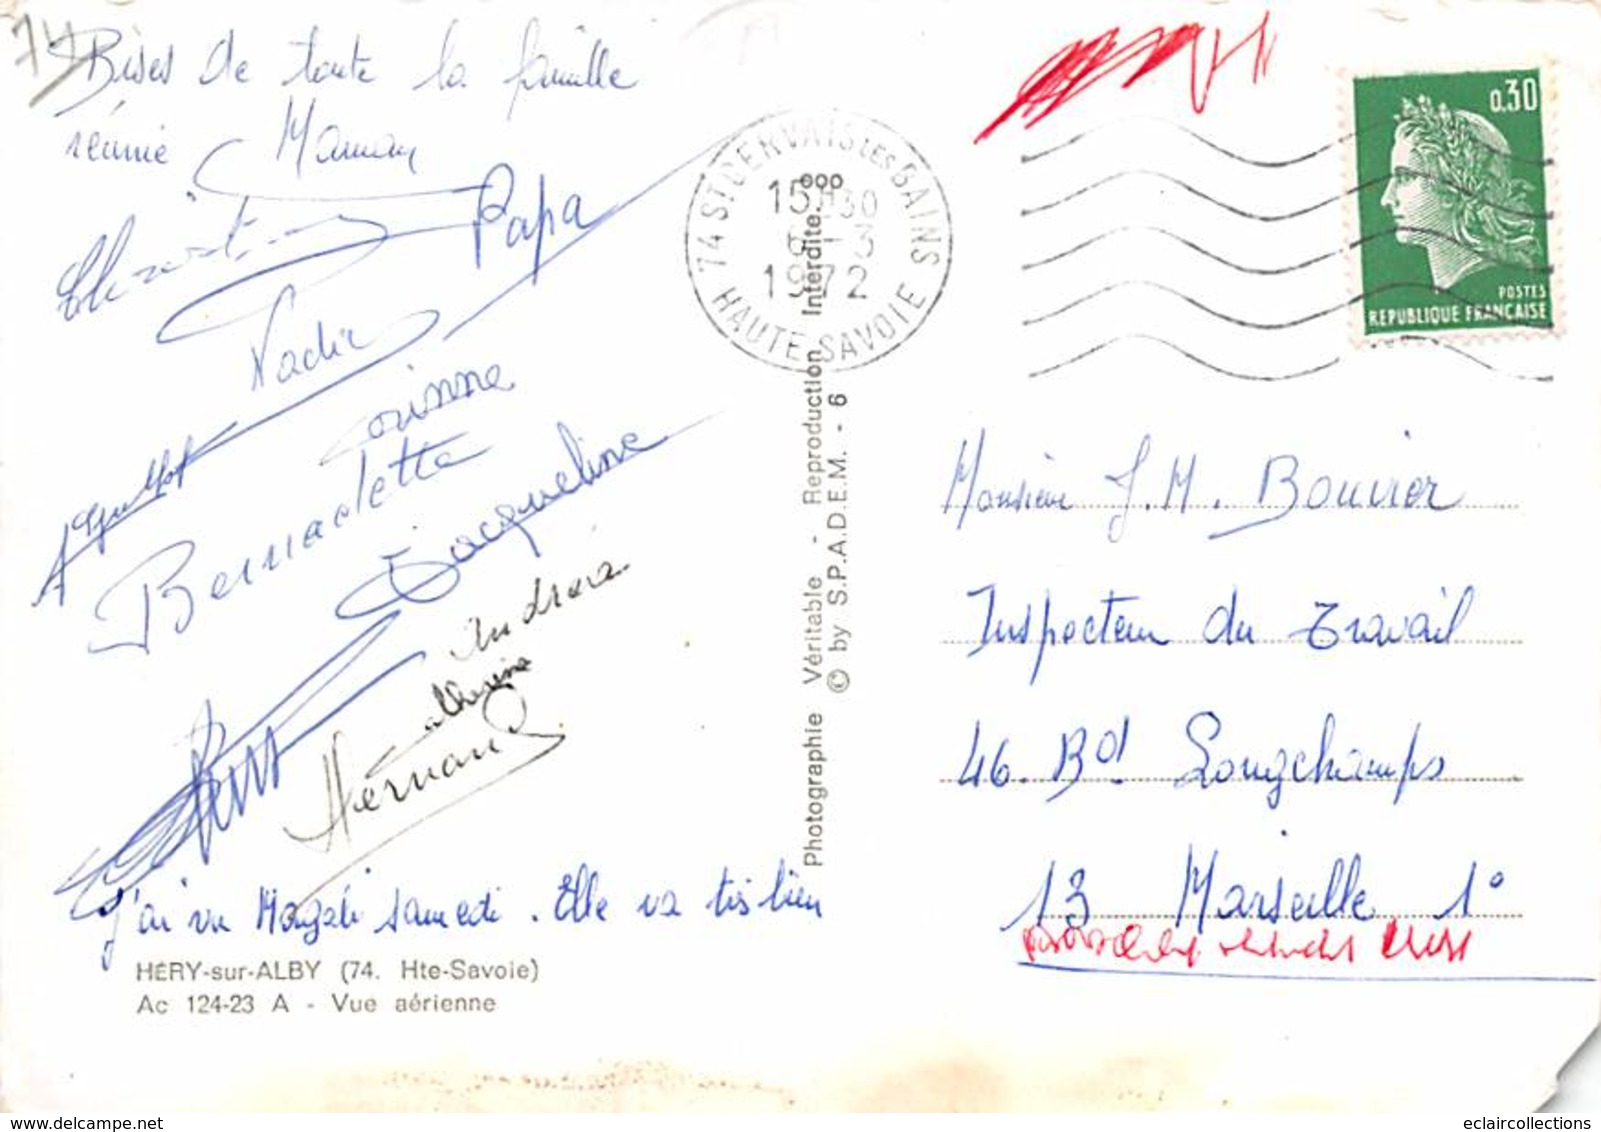 74
Bises de toute la famille
réunie Maman
Christ
Papa
Nadia
Corinne
Bernadette
Jacqueline
Andréa
Catherine
Hernand
J'ai vu Magali samedi. Elle va très bien
HÉRY-sur-ALBY (74. Hte-Savoie)
Ac 124-23 A - Vue aérienne
Photographie Véritable - Reproduction Interdite
© by S.P.A.D.E.M. - 6
74 ST GERVAIS LES BAINS
15H30
6-3
1972
HAUTE SAVOIE
0.30
POSTES
REPUBLIQUE FRANCAISE
Monsieur J.M. Bouvier
Inspecteur du Travail
46. Bd Longchamps
13 Marseille 1°
eclaircollections
www.delcampe.net